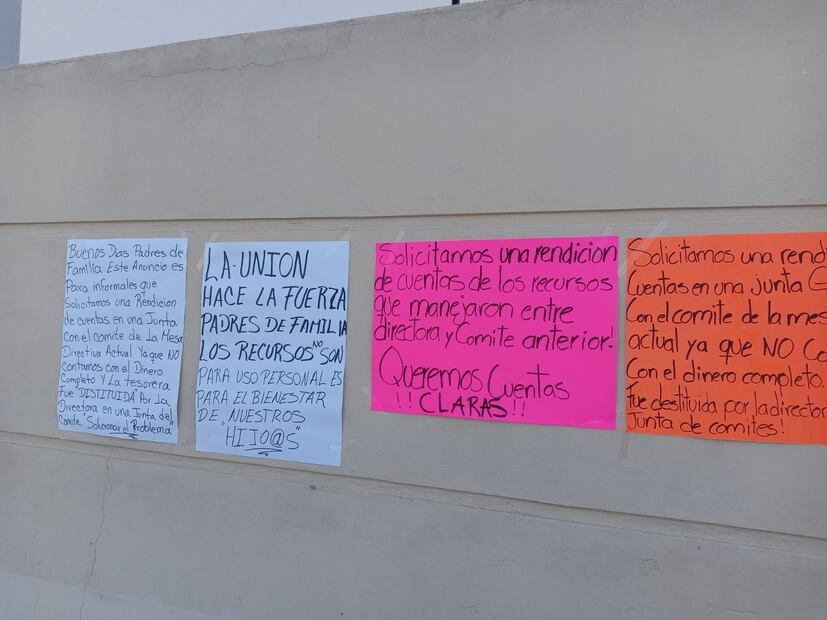 Buenos Dias Padres de
Familia. Este Anuncio es
Para informales que
Solicitamos una Rendicion
de cuentas en una Junta
con el comite de La Mesa
Directiva Actual Ya que NO
contamos con el Dinero
Completo Y La tesorera
Fue "DISTITUIDA" Por La
Directora en una Junta del
Comite. "Solucionar el Problema"
LA UNION
HACE LA FUERZA
PADRES DE FAMILIA
LOS RECURSOS "NO" SON
PARA USO PERSONAL ES
PARA EL BIENESTAR
DE NUESTROS
"HIJO@S"
Solicitamos una rendicion
de cuentas de los recursos
que manejaron entre
directora y Comite anterior!
Queremos Cuentas
!!CLARAS!!
Solicitamos una rend
Cuentas en una junta G
Con el comite de la mes
actual ya que NO Co
Con el dinero completo.
Fue destituida por la director
Junta de comites!